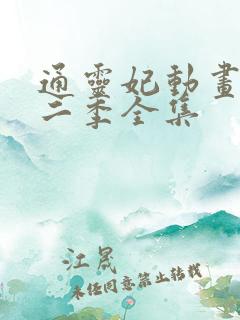 通靈妃動畫
二季全集
江晟
未经同意禁止转载